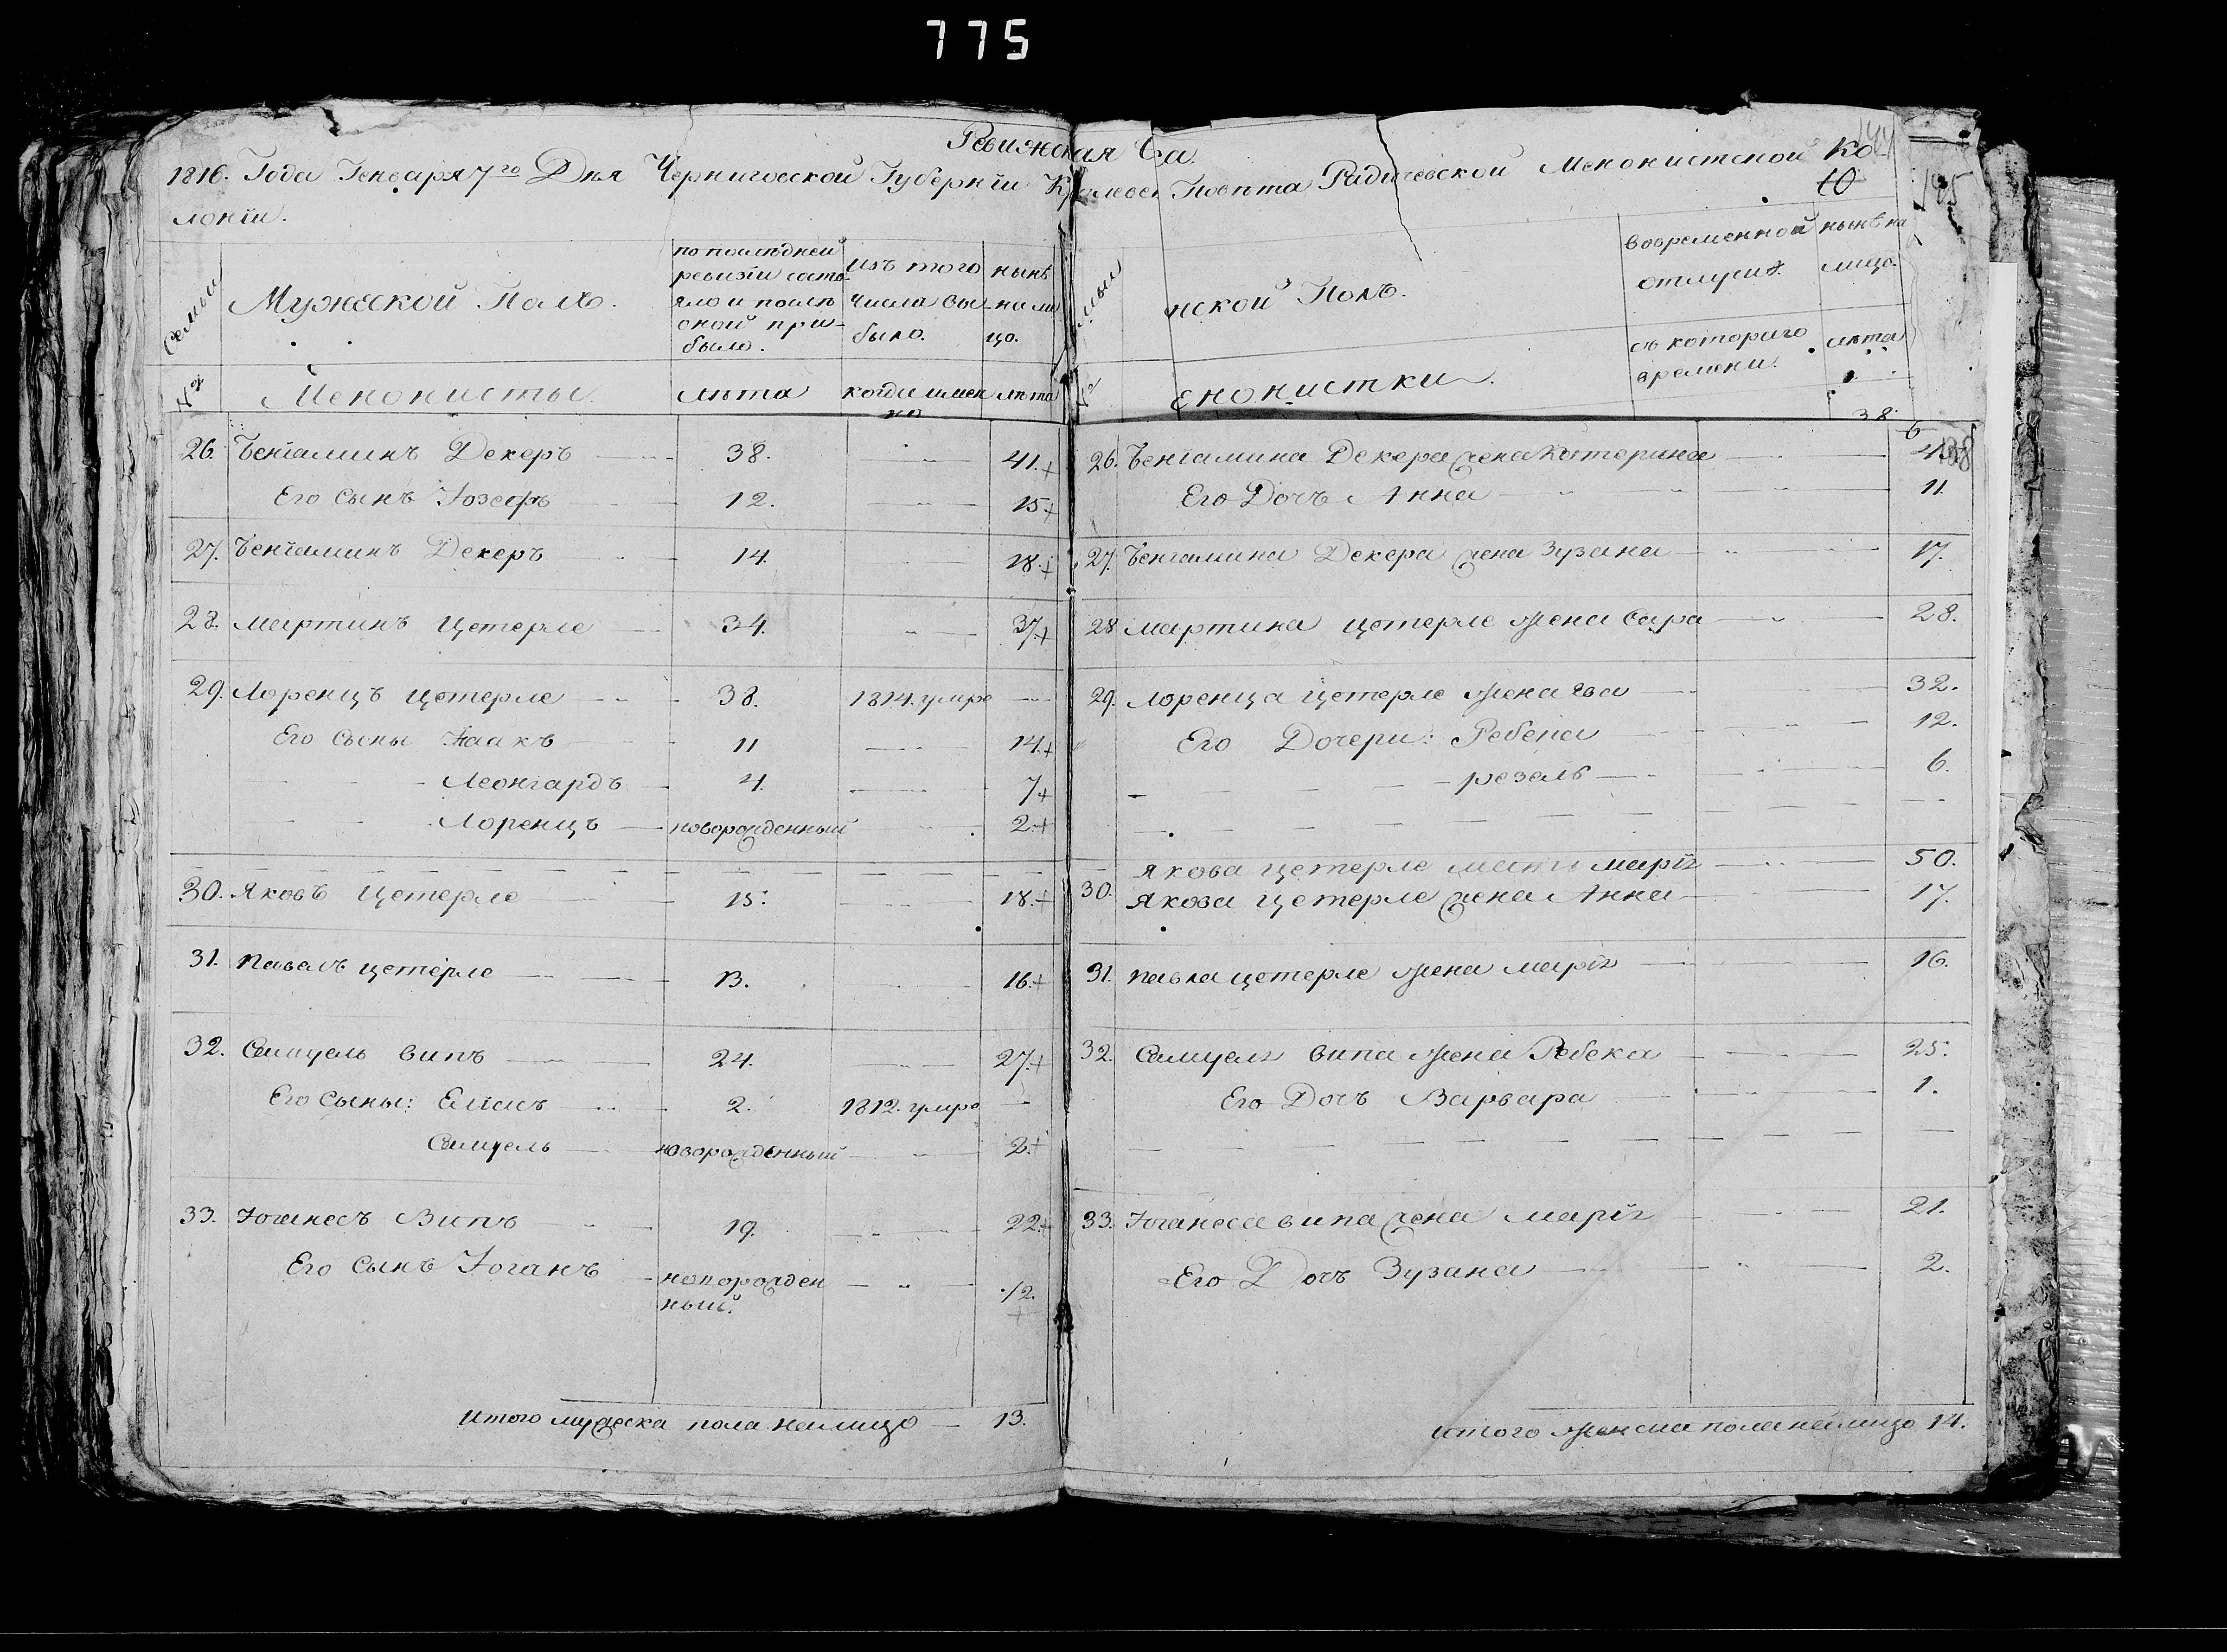 775
Ревижская Ска
1816. Года Генваря 7го Дня Черниговской Губернїи Кролевец Повѣта Радичевской Менонистской Ко
лонїи.
10
185
Семьи
Мужеской Полъ.
по послѣдней
ревизїи состо-
яло и послѣ
оной при-
было.
изъ того
числа вы-
было.
нынѣ
на ли
цо.
№
Менонисты.
лѣта
когда имен
но
лѣта
26. Бенїаминъ Декеръ 38. 41.+
Его сынъ Іозефъ 12. 15+
27. Бенїаминъ Декеръ 14. 18+
28. Мартинъ Цетерле 34. 37+
29. Лоренцъ Цетерле 38. 1814. умре
Его сыны 11 14+
Леонгардъ 4. 7+
Лоренцъ новорожденный 2+
30. Яковъ Цетерле 15. 18.+
31. Павалъ цетерле 13. 16+
32. Самуель випъ 24. 27+
Его сыны: Елїасъ 2. 1812. умре
Самуель новорожденный 2+
33. Іоганесъ Випъ 19. 22+
Его сынъ Іоганъ новорожден
ный. 1/2.
+
Итого мужеска пола налицо 13.
мьи
нской Полъ.
вовременной
отлучкѣ
нынѣ на
лицо.
съ котораго
времени.
лѣта
№
енонистки.
38
26. Бенїамина Декера жена Катерина 38
Его Дочь Анна 11.
27. Бенїамина Декера жена Зузана 17.
28 Мартина цетерле жена Сара 28.
29. Лоренца цетерле жена Ева 32.
Его Дочери: Ребека 12.
резель 6.
Якова цетерле мать марїя 50.
30. Якова цетерле жена Анна 17.
31. Павла цетерле жена марїя 16.
32. Самуеля випа жена Ребека 25.
Его Дочь Варвара 1.
33. Іоганеса випа жена Марїя 21.
Его Дочь Зузана 2.
итого женска пола налицо 14.